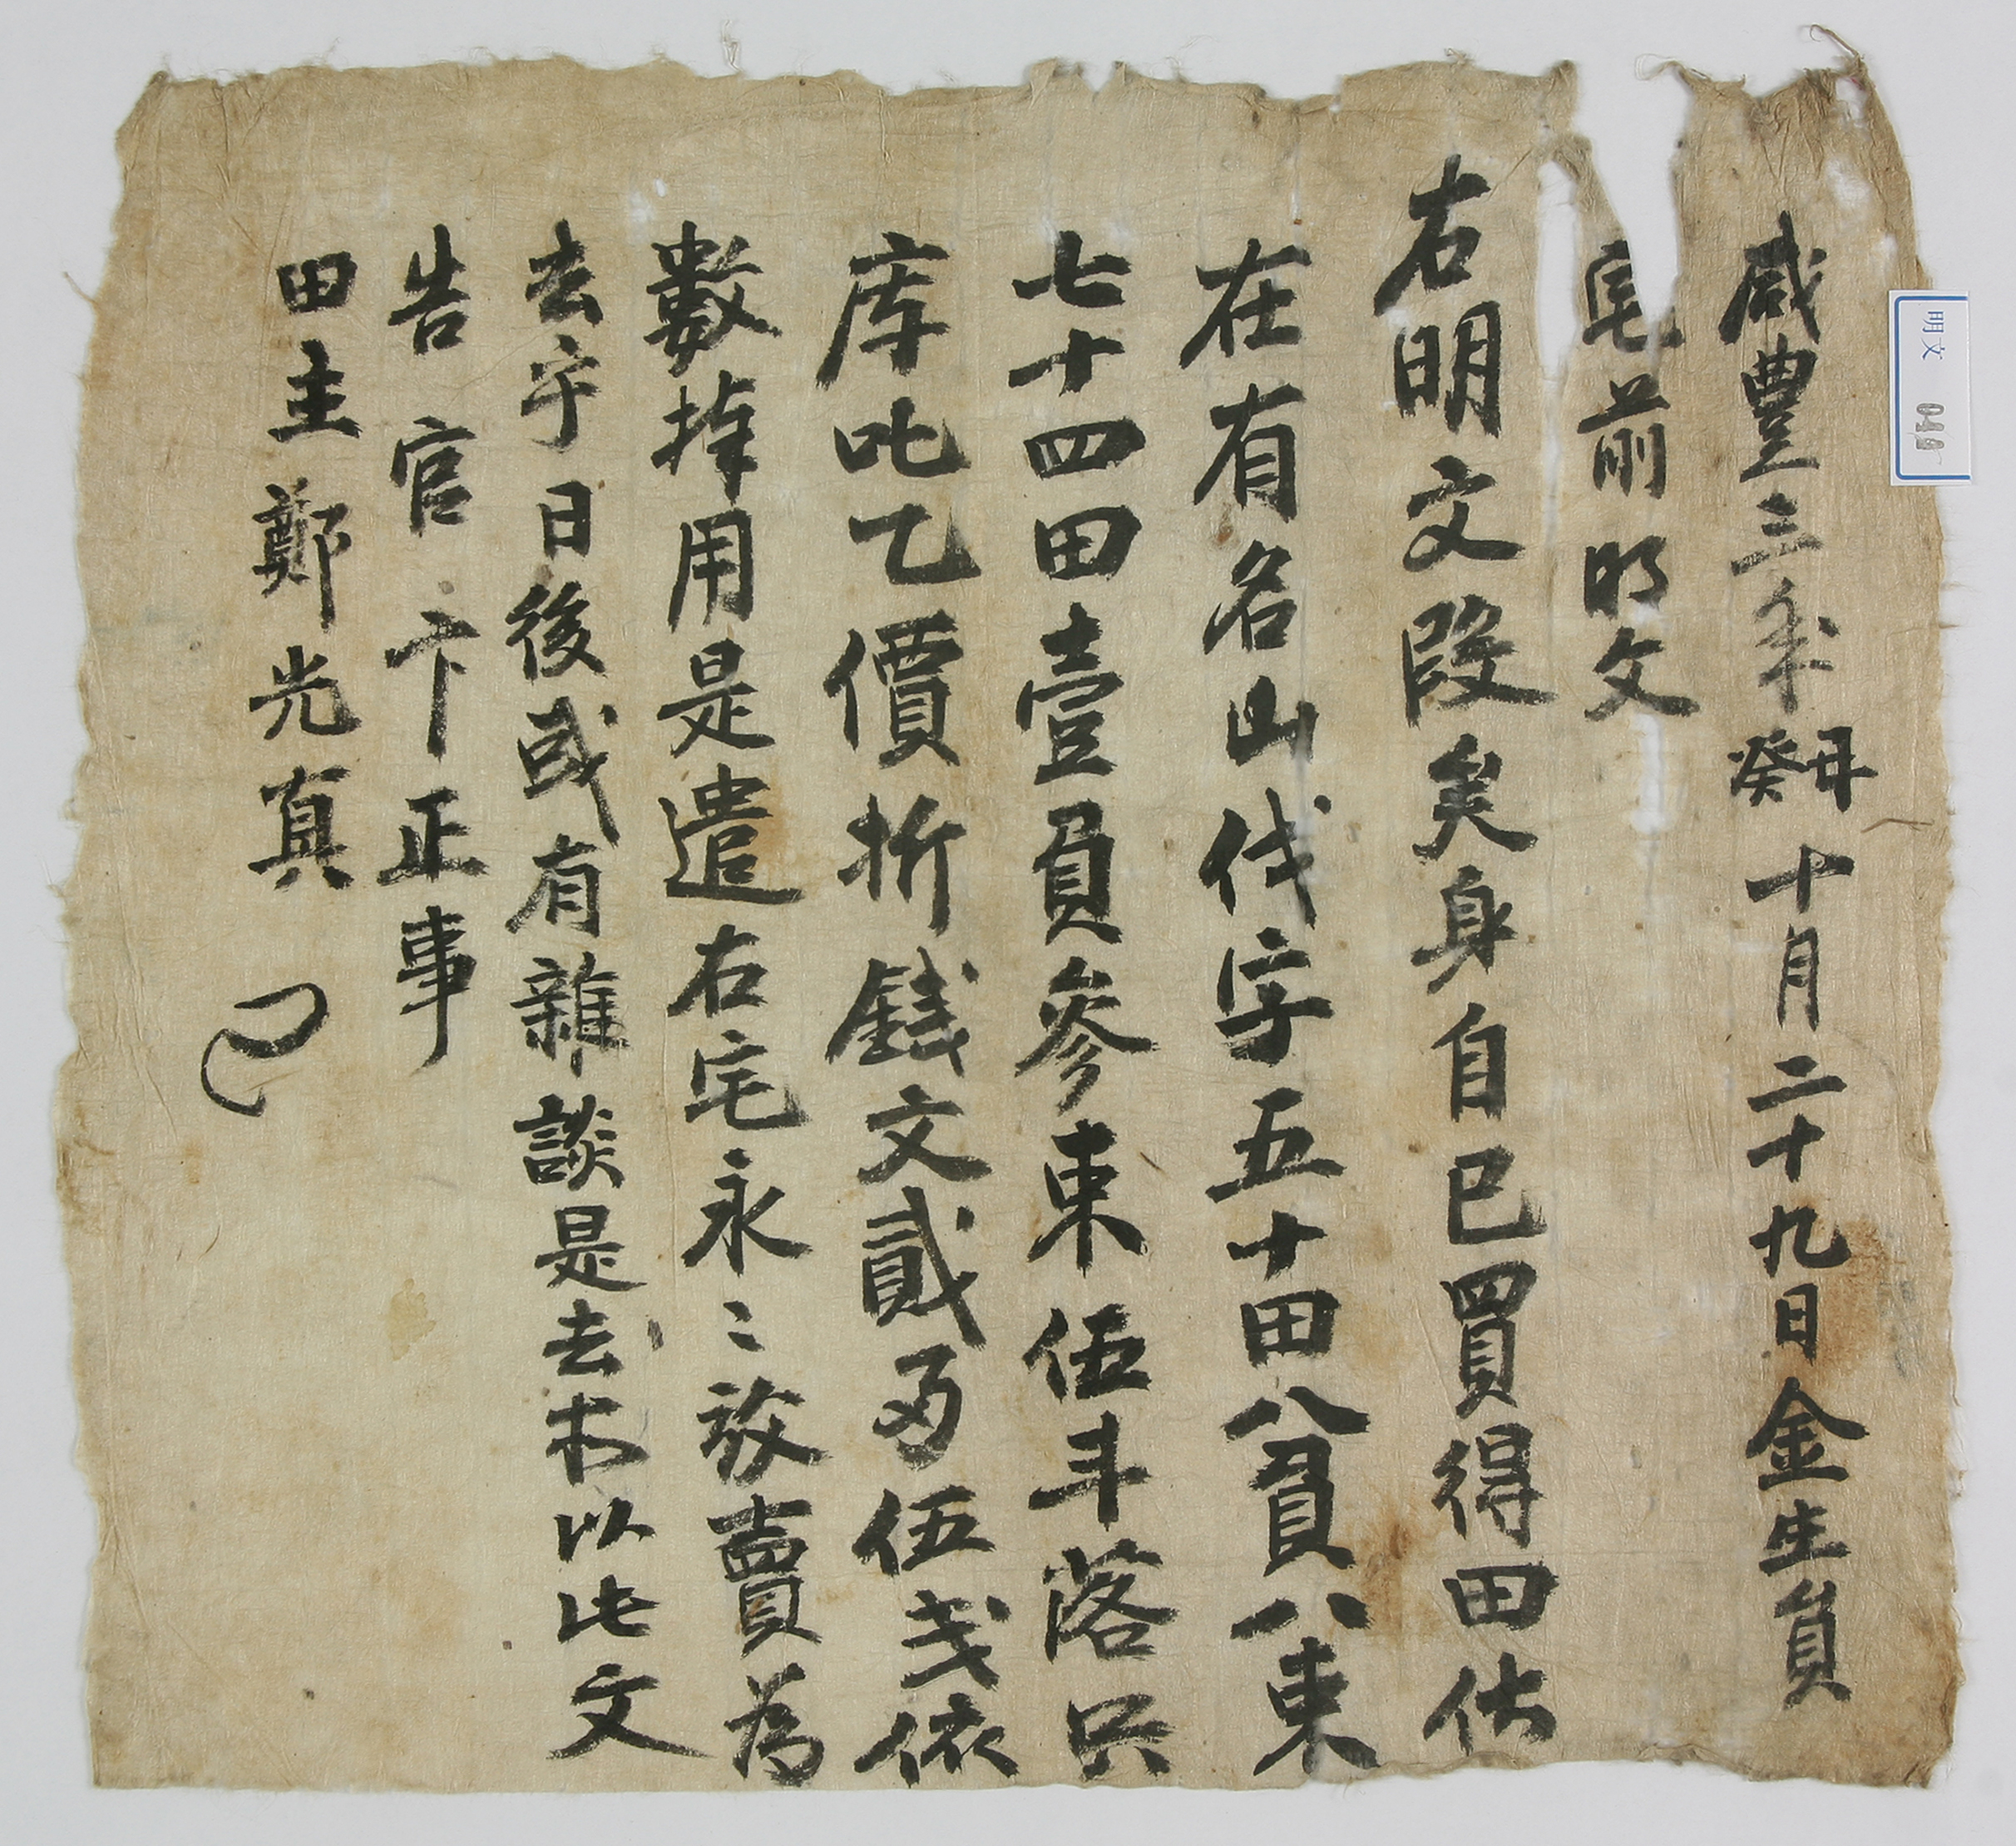 咸豊三年癸丑十月二十九日金生員
宅前明文
右明文段矣身自已買得田伏
在有名山伐字五十田八負八束
七十四田壹負參束伍斗落只
庫叱乙價折錢文貳両伍戔依
數捧用是遣右宅永〻放賣為
去乎日後或有雜談是去木以此文
告官卞正事
田主鄭光真
明文